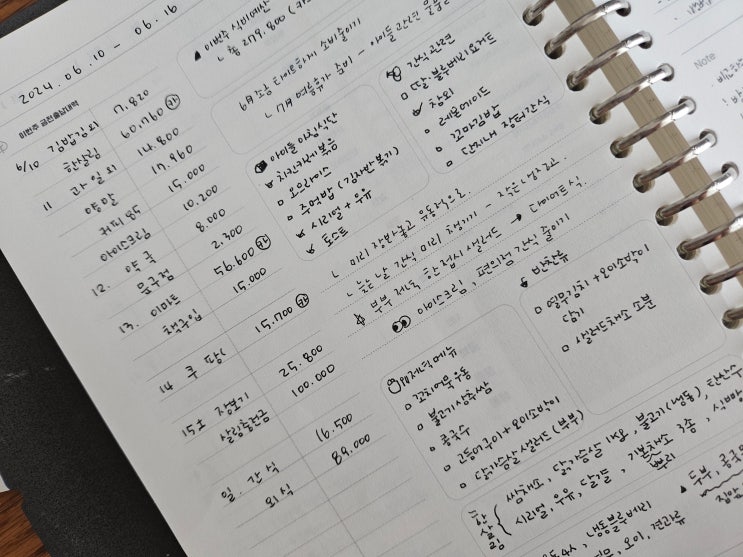 2024.06.10 - 06.16
이번주 금전출납내역
6/10 김밥김외 7.820
한살림 60.760 카
11 과일외 14.800
양말 17.960
커피 85 15.000
아이스크림 10.200
12. 약국 8.000
문구점 2.300
13. 이마트 56.600 카
책구입 15.000
14 쿠팡 15.700 카
15토 장보기 25.800
살림현금 100.000
일. 간식 16.500
외식 89.000
▲ 이번주 식비예산
ㄴ 총 279.800
6月 조금 타이트하게 소비줄이기
ㄴ 7月 여름휴가 준비 - 아이들 관련
아이들 아침식단
치킨카레볶음
오므라이스
주먹밥 (김자반볶기)
시리얼 + 우유
토스트
간식 관련
딸.블루베리요거트
참외
레몬에이드
꼬마김밥
단지내 장터간식
ㄴ 미리 장봐놓고 유동식으로.
ㄴ 더운날 간식 미리 챙기기 - 작은 생수얼고.
☆ 부부 저녁 한접시 샐러드 → 다이어트식.
아이스크림, 편의점 간식 줄이기
저녁 메뉴
꼬치어묵우동
불고기상추쌈
콩국수
고등어구이 + 오이소박이
닭가슴살 샐러드 (부부)
반찬류
열무김치 + 오이소박이
담기
샐러드채소 소분
한살림
쌈채소, 닭가슴살 1kg, 불고기(냉동), 탄산수
시리얼, 우유, 달걀, 기본채소 3종, 식빵
뿌리
▲ 두부, 콩국
냉동블루베리
오이, 견과류
Note